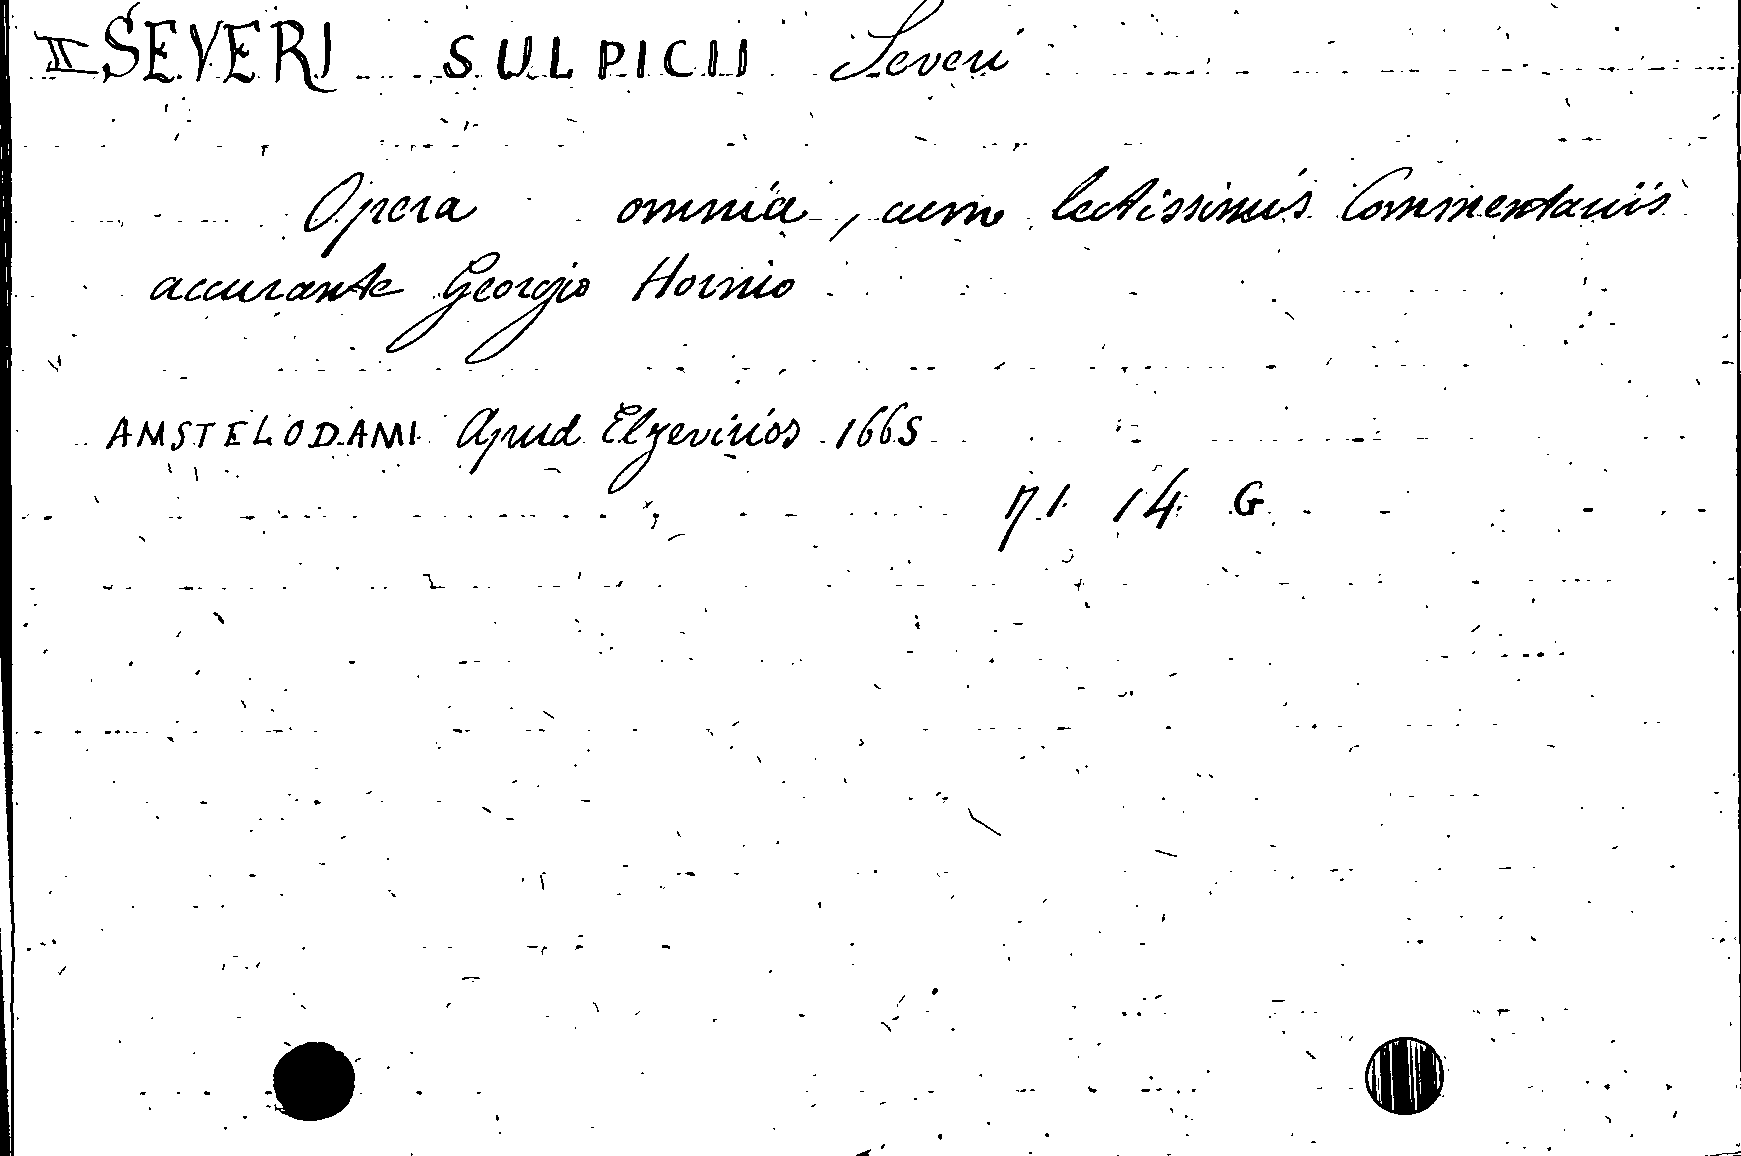 II SEVERI SULPICII Severi
Opera omnia, cum lectissimis Commentariis
accurante Georgio Hornio
AMSTELODAMI Apud Elzevirios 1665
14 G